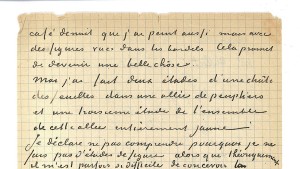 café devant que j'ai peint aussi mais avec
des figures vues dans les bordels. Cela promet
de devenir une belle chose.
Moi j'ai fait deux études d'une chûte
des feuilles dans une allée de peupliers
et une troisieme étude de l'ensemble
de cette allée entierement jaune.
Je déclare ne pas comprendre pourquoi je ne
fais pas d'études de figure alors que théoriquement
il m'est parfois si difficile de concevoir la